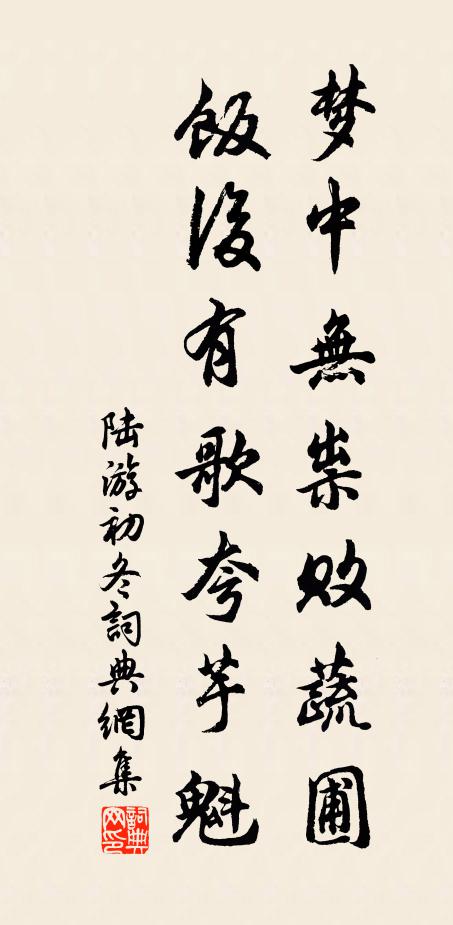 梦中無祟敗蔬圃
飯後有歌夸芋魁
陆游初冬詞典網集
詞典网印